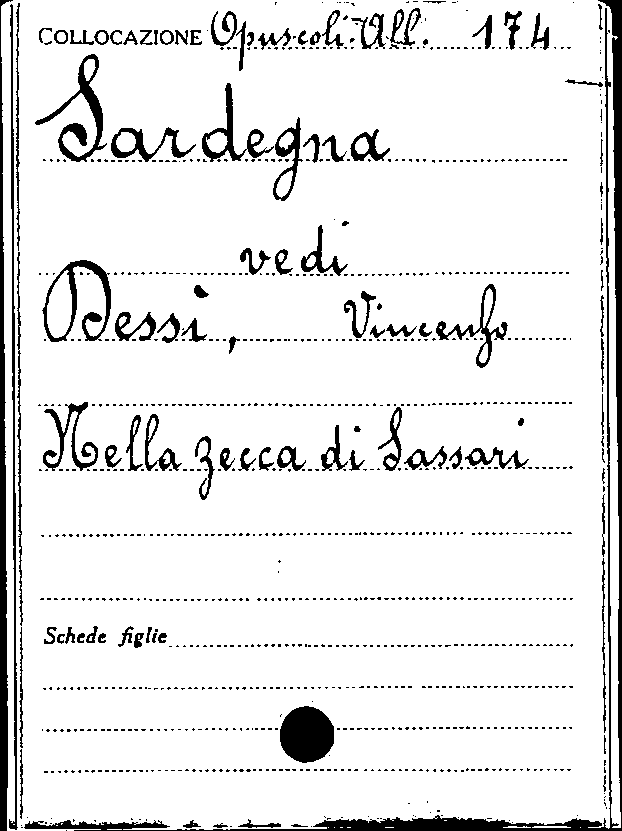 COLLOCAZIONE Opuscoli. All. 174
Sardegna
vedi
Dessì, Vincenzo
Nella zecca di Sassari
Schede figlie